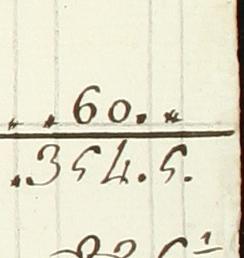 . . 60. .
.354.5.